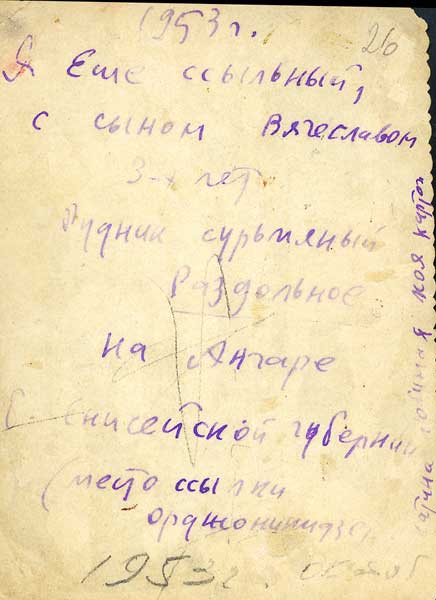 1953 г.
26
Я Еше ссыльный,
с сыном Вячеславом
3-х лет
Рудник сурьмяный
Раздольное
на Ангаре
Енисейской губернии
(место ссылки
орджоникидзе
1953 г.
моя